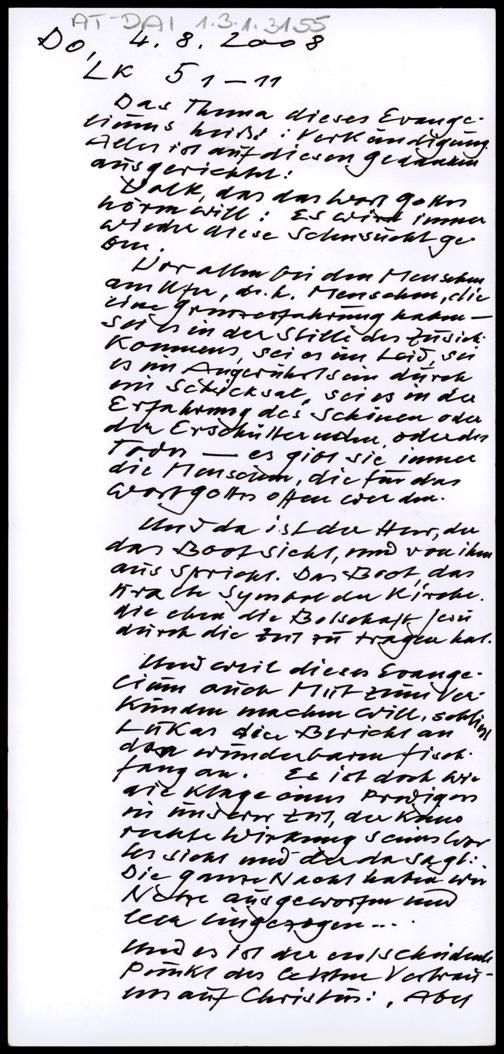 AT-DAI 1.3.1.3155
Do, 4.8.2008
LK 5 1–11
Das Thema dieses Evange-
liums heißt: Verkündigung
Alles ist auf diesen Gedanken
ausgerichtet:
Volk, das das Wort Gottes
hören will: Es wird immer
wieder diese Sehnsucht ge-
ben.
Vor allem bei den Menschen
am Ufer, d.h. Menschen, die
eine Grenzerfahrung haben –
sei es in der Stille des Zusich-
kommens, sei es im Leid, sei
es im Angerührtsein durch
ein Schicksal, sei es in der
Erfahrung des Schönen oder
der Erschütternden, oder des
Todes – es gibt sie immer
die Menschen, die für das
Wort Gottes offen werden.
Und da ist der Herr, der
das Boot sieht, und von ihm
aus spricht. Das Boot, das
uralte Symbol der Kirche.
die eben die Botschaft Jesu
durch die Zeit zu tragen hat.
Und weil dieses Evange-
lium auch Mut zum Ver-
künden machen will, schließt
Lukas die Bericht an
den wunderbaren Fisch-
fang an. Es ist doch wie
die Klage eines Predigers
in unserer Zeit, der keine
rechte Wirkung seines Wor-
tes sieht und der da sagt:
Die ganze Nacht haben wir
Netze ausgeworfen und
leer eingezogen...
Und es ist der entscheidende
Punkt des letzten Vertrau-
ens auf Christus: „Aber